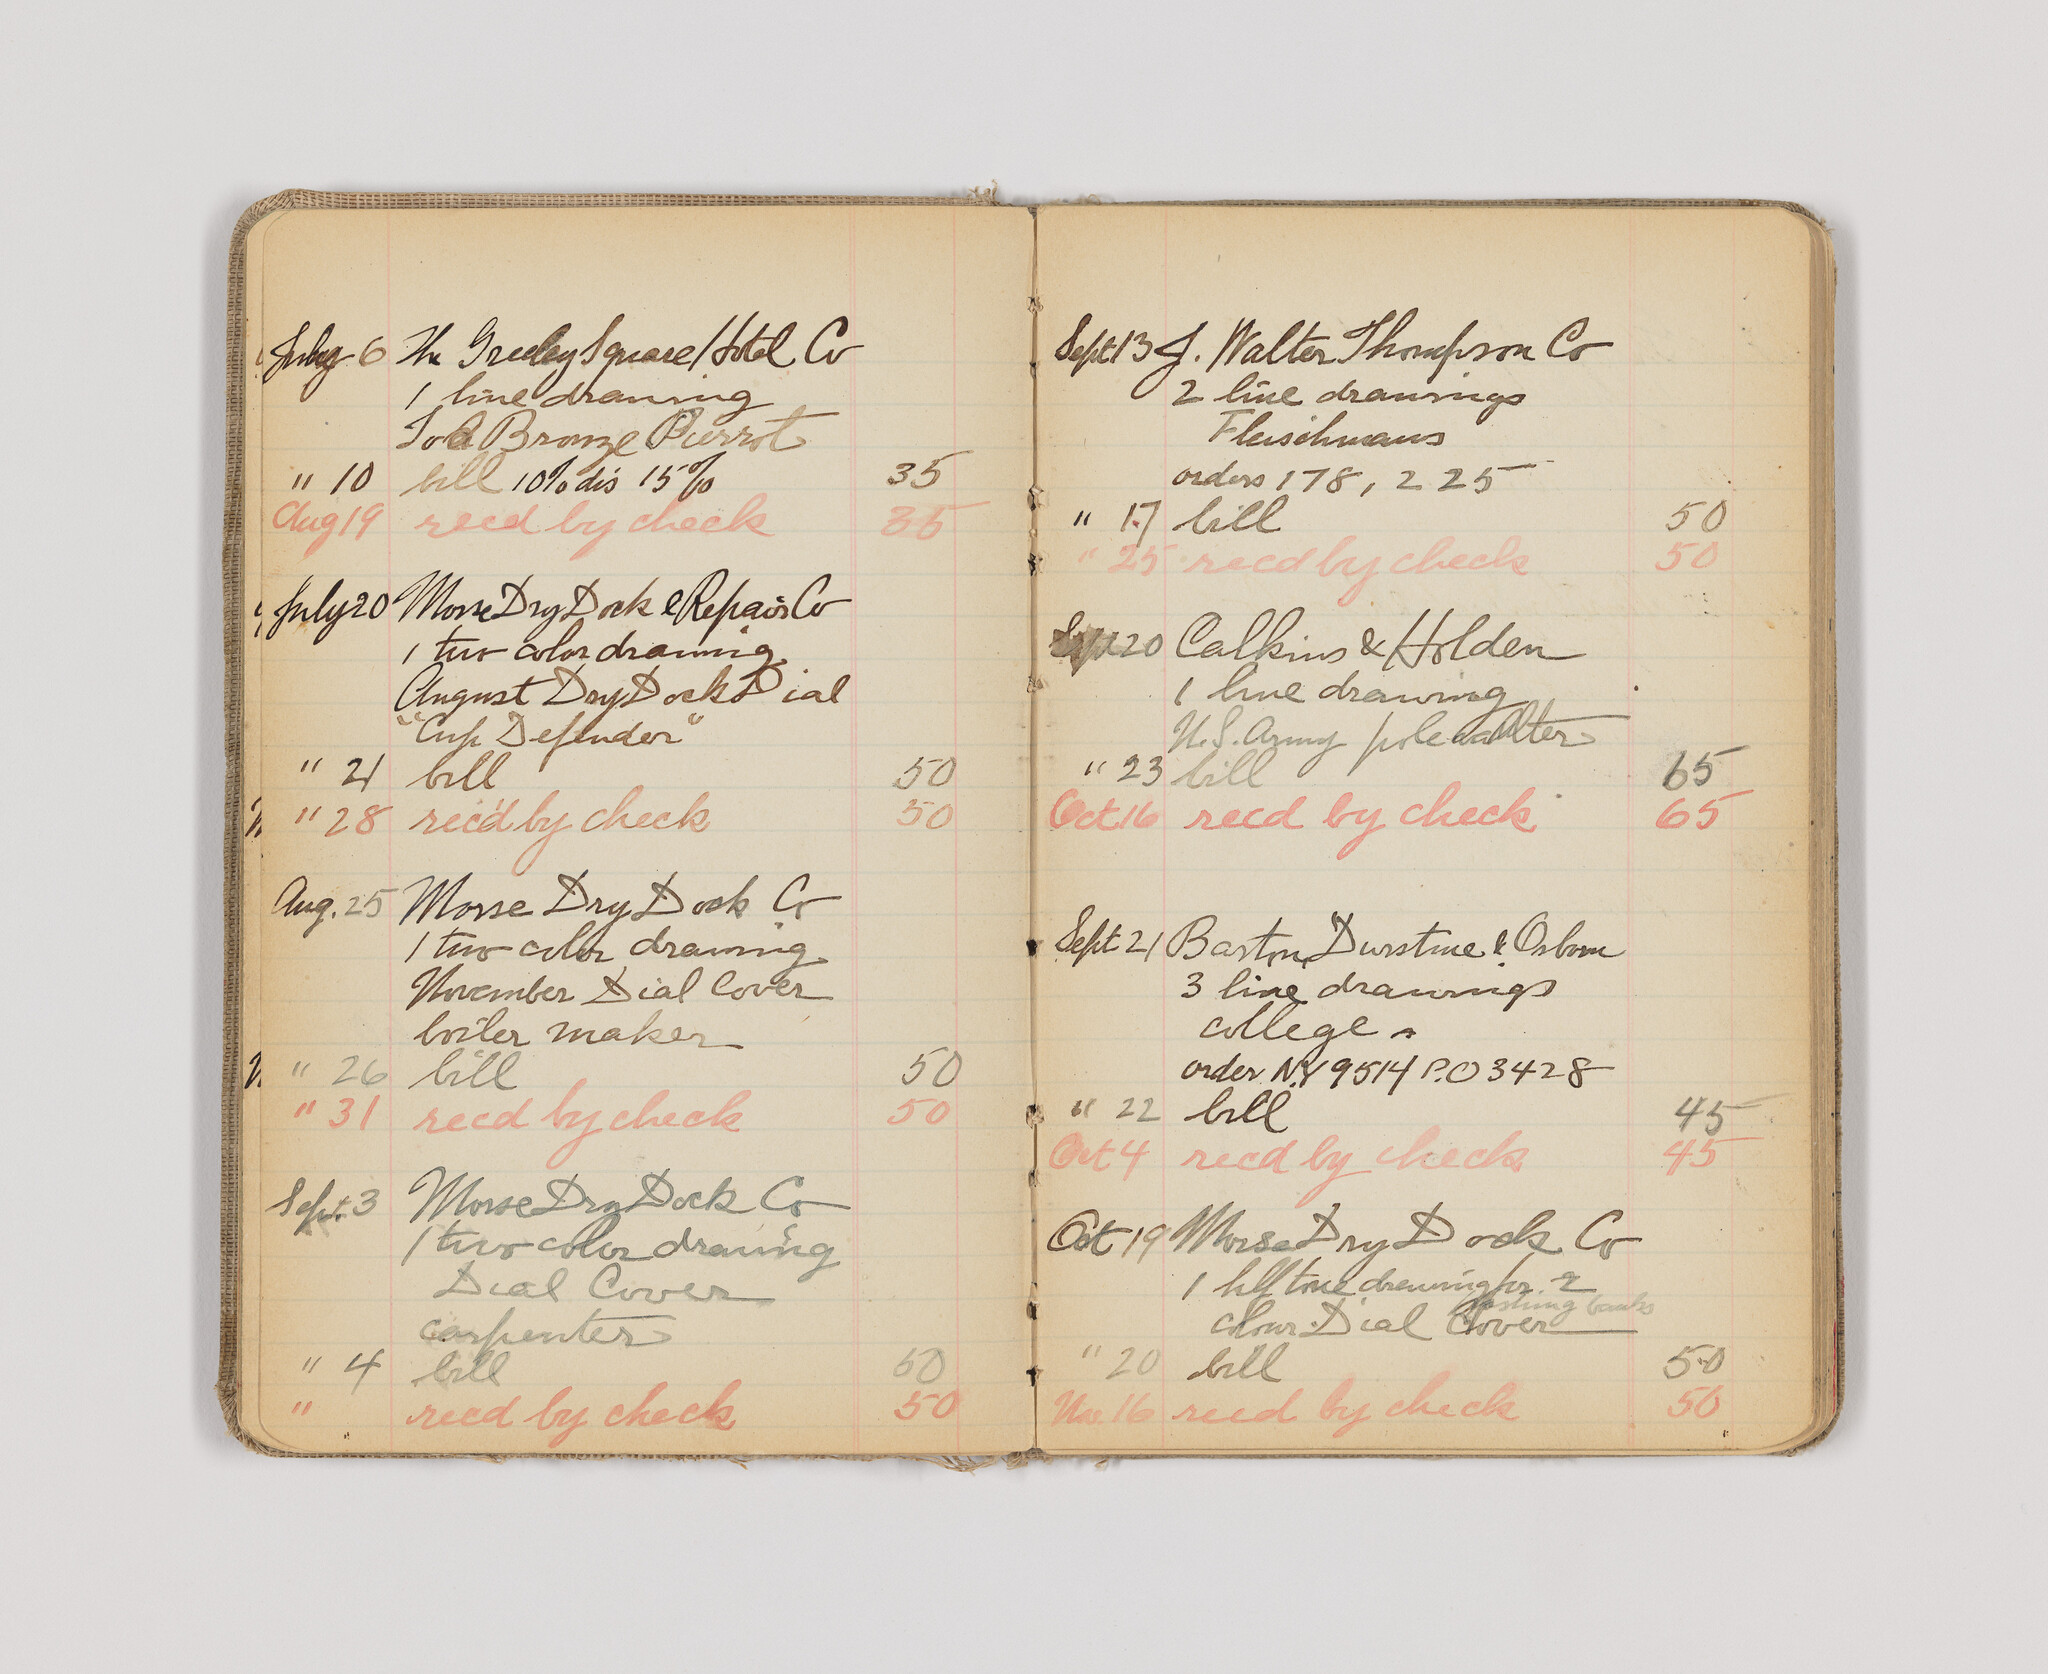 July 6 The Greeley Square Hotel Co
1 line drawing
Bronze Pierrot
" 10 bill 10% dis 15% 35
Aug 19 recd by check 35
July 20 Morse Dry Dock & Repair Co
1 two color drawing
August Dry Dock Dial
"Cup Defender"
" 21 bill 50
" 28 rec'd by check 50
Aug. 25 Morse Dry Dock Co
1 two color drawing
November Dial Cover
boiler maker
" 26 bill 50
" 31 recd by check 50
Sept. 3 Morse Dry Dock Co
1 two color drawing
Dial Cover
carpenter
" 4 bill 50
" recd by check 50
Sept 13 J. Walter Thompson Co
2 line drawings
Fleischmans
orders 178, 225
" 17 bill 50
" 25 recd by check 50
Sept 20 Calkins & Holden
1 line drawing
U.S. Army pole vaulter
" 23 bill 65
Oct 16 recd by check 65
Sept 21 Barton, Durstine & Osborn
3 line drawings
college
order N.Y 9514 P.O 3428
" 22 bill 45
Oct 4 recd by check 45
Oct 19 Morse Dry Dock Co
1 hlf tone drawing for 2
colour Dial Cover
" 20 bill 50
Nov. 16 recd by check 50